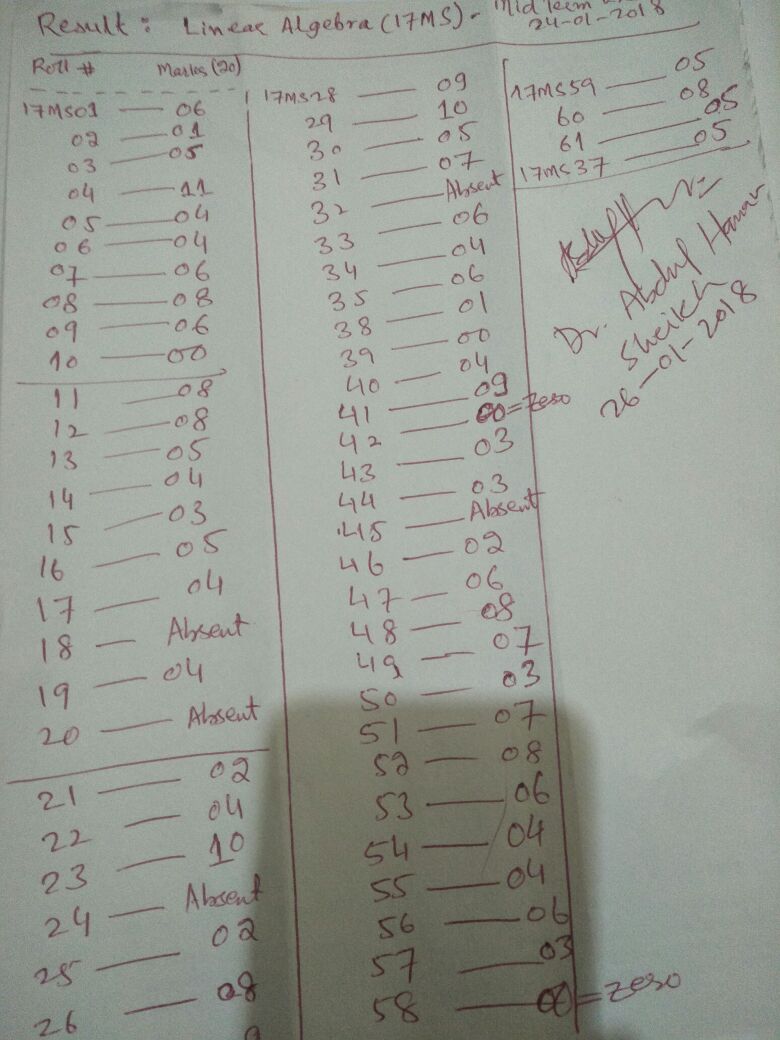 Result : Linear Algebra (17MS) - Mid Term
24-01-2018
Roll # Marks (20)
17MS01 — 06
02 — 01
03 — 05
04 — 11
05 — 04
06 — 04
07 — 06
08 — 08
09 — 06
10 — 00
11 — 08
12 — 08
13 — 05
14 — 04
15 — 03
16 — 05
17 — 04
18 — Absent
19 — 04
20 — Absent
21 — 02
22 — 04
23 — 10
24 — Absent
25 — 02
26 — 08
17MS28 — 09
29 — 10
30 — 05
31 — 07
32 — Absent
33 — 06
34 — 04
35 — 06
38 — 01
39 — 00
40 — 04
41 — 09
42 — 00 = Zero
43 — 03
44 — 03
45 — Absent
46 — 02
47 — 06
48 — 08
49 — 07
50 — 03
51 — 07
52 — 08
53 — 06
54 — 04
55 — 04
56 — 06
57 — 03
58 — 00 = Zero
17MS59 — 05
60 — 08
61 — 05
17MS37 — 05
Dr. Abdul
Sheikh
26-01-2018